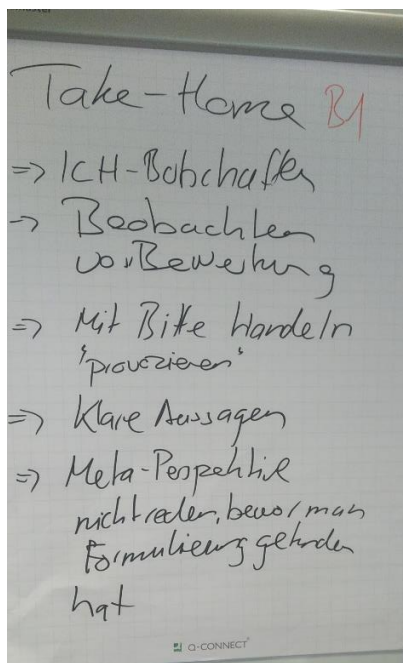 Take-Home B1
=> ICH-Botschaften
=> Beobachten
vor Bewertung
=> Mit Bitte Handeln
"provozieren"
=> Klare Aussagen
=> Meta-Perspektive
nicht reden, bevor man
Formulierung gefunden
hat
Q-CONNECT